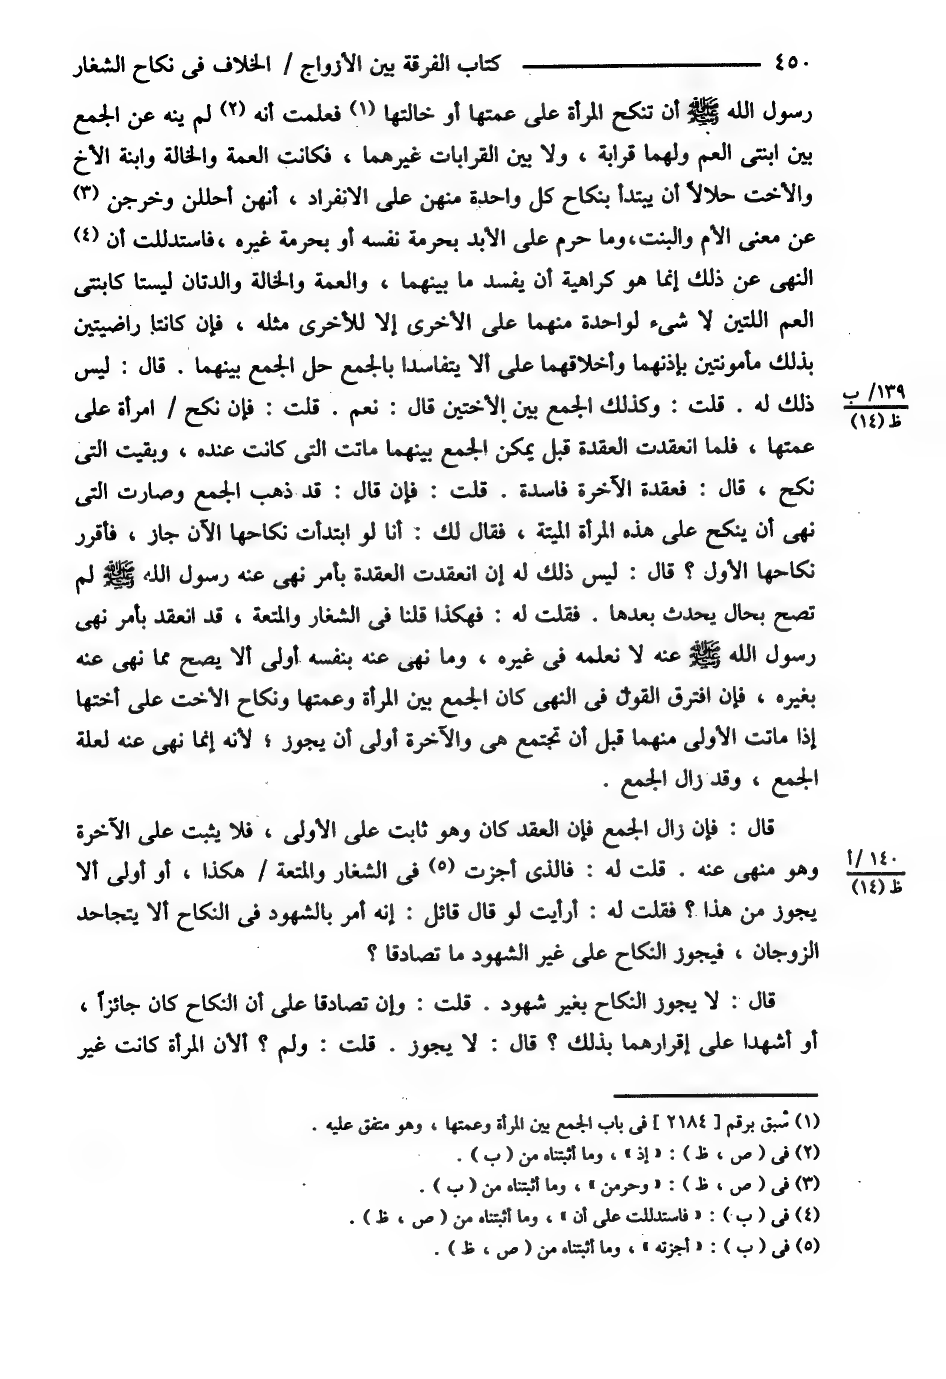 ٤٥٠ ــــــــــــــــ كتاب الفرقة بين الأزواج / الخلاف فى نكاح الشغار
رسول الله ﷺ أن تنكح المرأة على عمتها أو خالتها (١) فعلمت أنه (٢) لم ينه عن الجمع
بين ابنتى العم ولهما قرابة ، ولا بين القرابات غيرهما ، فكانت العمة والخالة وابنة الأخ
والأخت حلالاً أن يبتدأ بنكاح كل واحدة منهن على الانفراد ، أنهن أحللن وخرجن (٣)
عن معنى الأم والبنت،وما حرم على الأبد بحرمة نفسه أو بحرمة غيره ،فاستدللت أن (٤)
النهى عن ذلك إنما هو كراهية أن يفسد ما بينهما ، والعمة والخالة والدتان ليستا كابنتى
العم اللتين لا شىء لواحدة منهما على الأخرى إلا للأخرى مثله ، فإن كانتا راضيتين
بذلك مأمونتين بإذنهما وأخلاقهما على ألا يتفاسدا بالجمع حل الجمع بينهما . قال : ليس
ذلك له . قلت : وكذلك الجمع بين الأختين قال : نعم . قلت : فإن نكح / امرأة على
١٣٩/ ب
ظ (١٤)
عمتها ، فلما انعقدت العقدة قبل يمكن الجمع بينهما ماتت التى كانت عنده ، وبقيت التى
نكح ، قال : فعقدة الآخرة فاسدة . قلت : فإن قال : قد ذهب الجمع وصارت التى
نهى أن ينكح على هذه المرأة الميتة ، فقال لك : أنا لو ابتدأت نكاحها الآن جاز ، فأقرر
نكاحها الأول ؟ قال : ليس ذلك له إن انعقدت العقدة بأمر نهى عنه رسول الله ﷺ لم
تصح بحال يحدث بعدها . فقلت له : فهكذا قلنا فى الشغار والمتعة ، قد انعقد بأمر نهى
رسول الله ﷺ عنه لا نعلمه فى غيره ، وما نهى عنه بنفسه أولى ألا يصح مما نهى عنه
بغيره ، فإن افترق القول فى النهى كان الجمع بين المرأة وعمتها ونكاح الأخت على أختها
إذا ماتت الأولى منهما قبل أن تجتمع هى والآخرة أولى أن يجوز ؛ لأنه إنما نهى عنه لعلة
الجمع ، وقد زال الجمع .
قال : فإن زال الجمع فإن العقد كان وهو ثابت على الأولى ، فلا يثبت على الآخرة
وهو منهى عنه . قلت له : فالذى أجزت (٥) فى الشغار والمتعة / هكذا ، أو أولى ألا
١٤٠ /أ
ظ (١٤)
يجوز من هذا ؟ فقلت له : أرأيت لو قال قائل : إنه أمر بالشهود فى النكاح ألا يتجاحد
الزوجان ، فيجوز النكاح على غير الشهود ما تصادقا ؟
قال : لا يجوز النكاح بغير شهود . قلت : وإن تصادقا على أن النكاح كان جائزاً ،
أو أشهدا على إقرارهما بذلك ؟ قال : لا يجوز . قلت : ولم ؟ ألأن المرأة كانت غير
(١) سبق برقم [ ٢١٨٤ ] فى باب الجمع بين المرأة وعمتها ، وهو متفق عليه .
(٢) فى ( ص ، ظ ) : « إذ » ، وما أثبتناه من ( ب ) .
(٣) فى ( ص ، ظ ) : « وحرمن » ، وما أثبتناه من ( ب ) .
(٤) فى ( ب ) : « فاستدللت على أن » ، وما أثبتناه من ( ص ، ظ ) .
(٥) فى ( ب ) : « أجزته » ، وما أثبتناه من ( ص ، ظ ) .